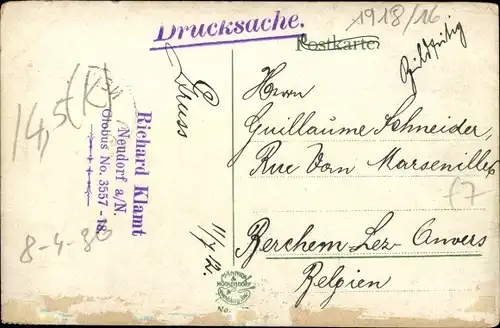 Drucksache.
1918/16
Postkarte.
Bildseitig
Gruss
14,5(K)
Richard Klamt
Neudorf a/N.
Globus No. 3557-18.
8-4-80
Herrn
Guillaume Schneider,
Rue Van Marsenille
17
Berchem-Lez-Anvers
Belgien
11/7 12.
No.